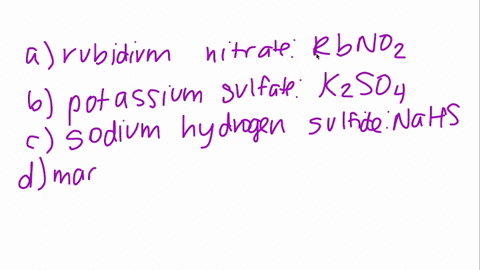 a) rubidium nitrate: RbNO2
b) potassium sulfate: K2SO4
c) sodium hydrogen sulfide: NaHS
d) mar